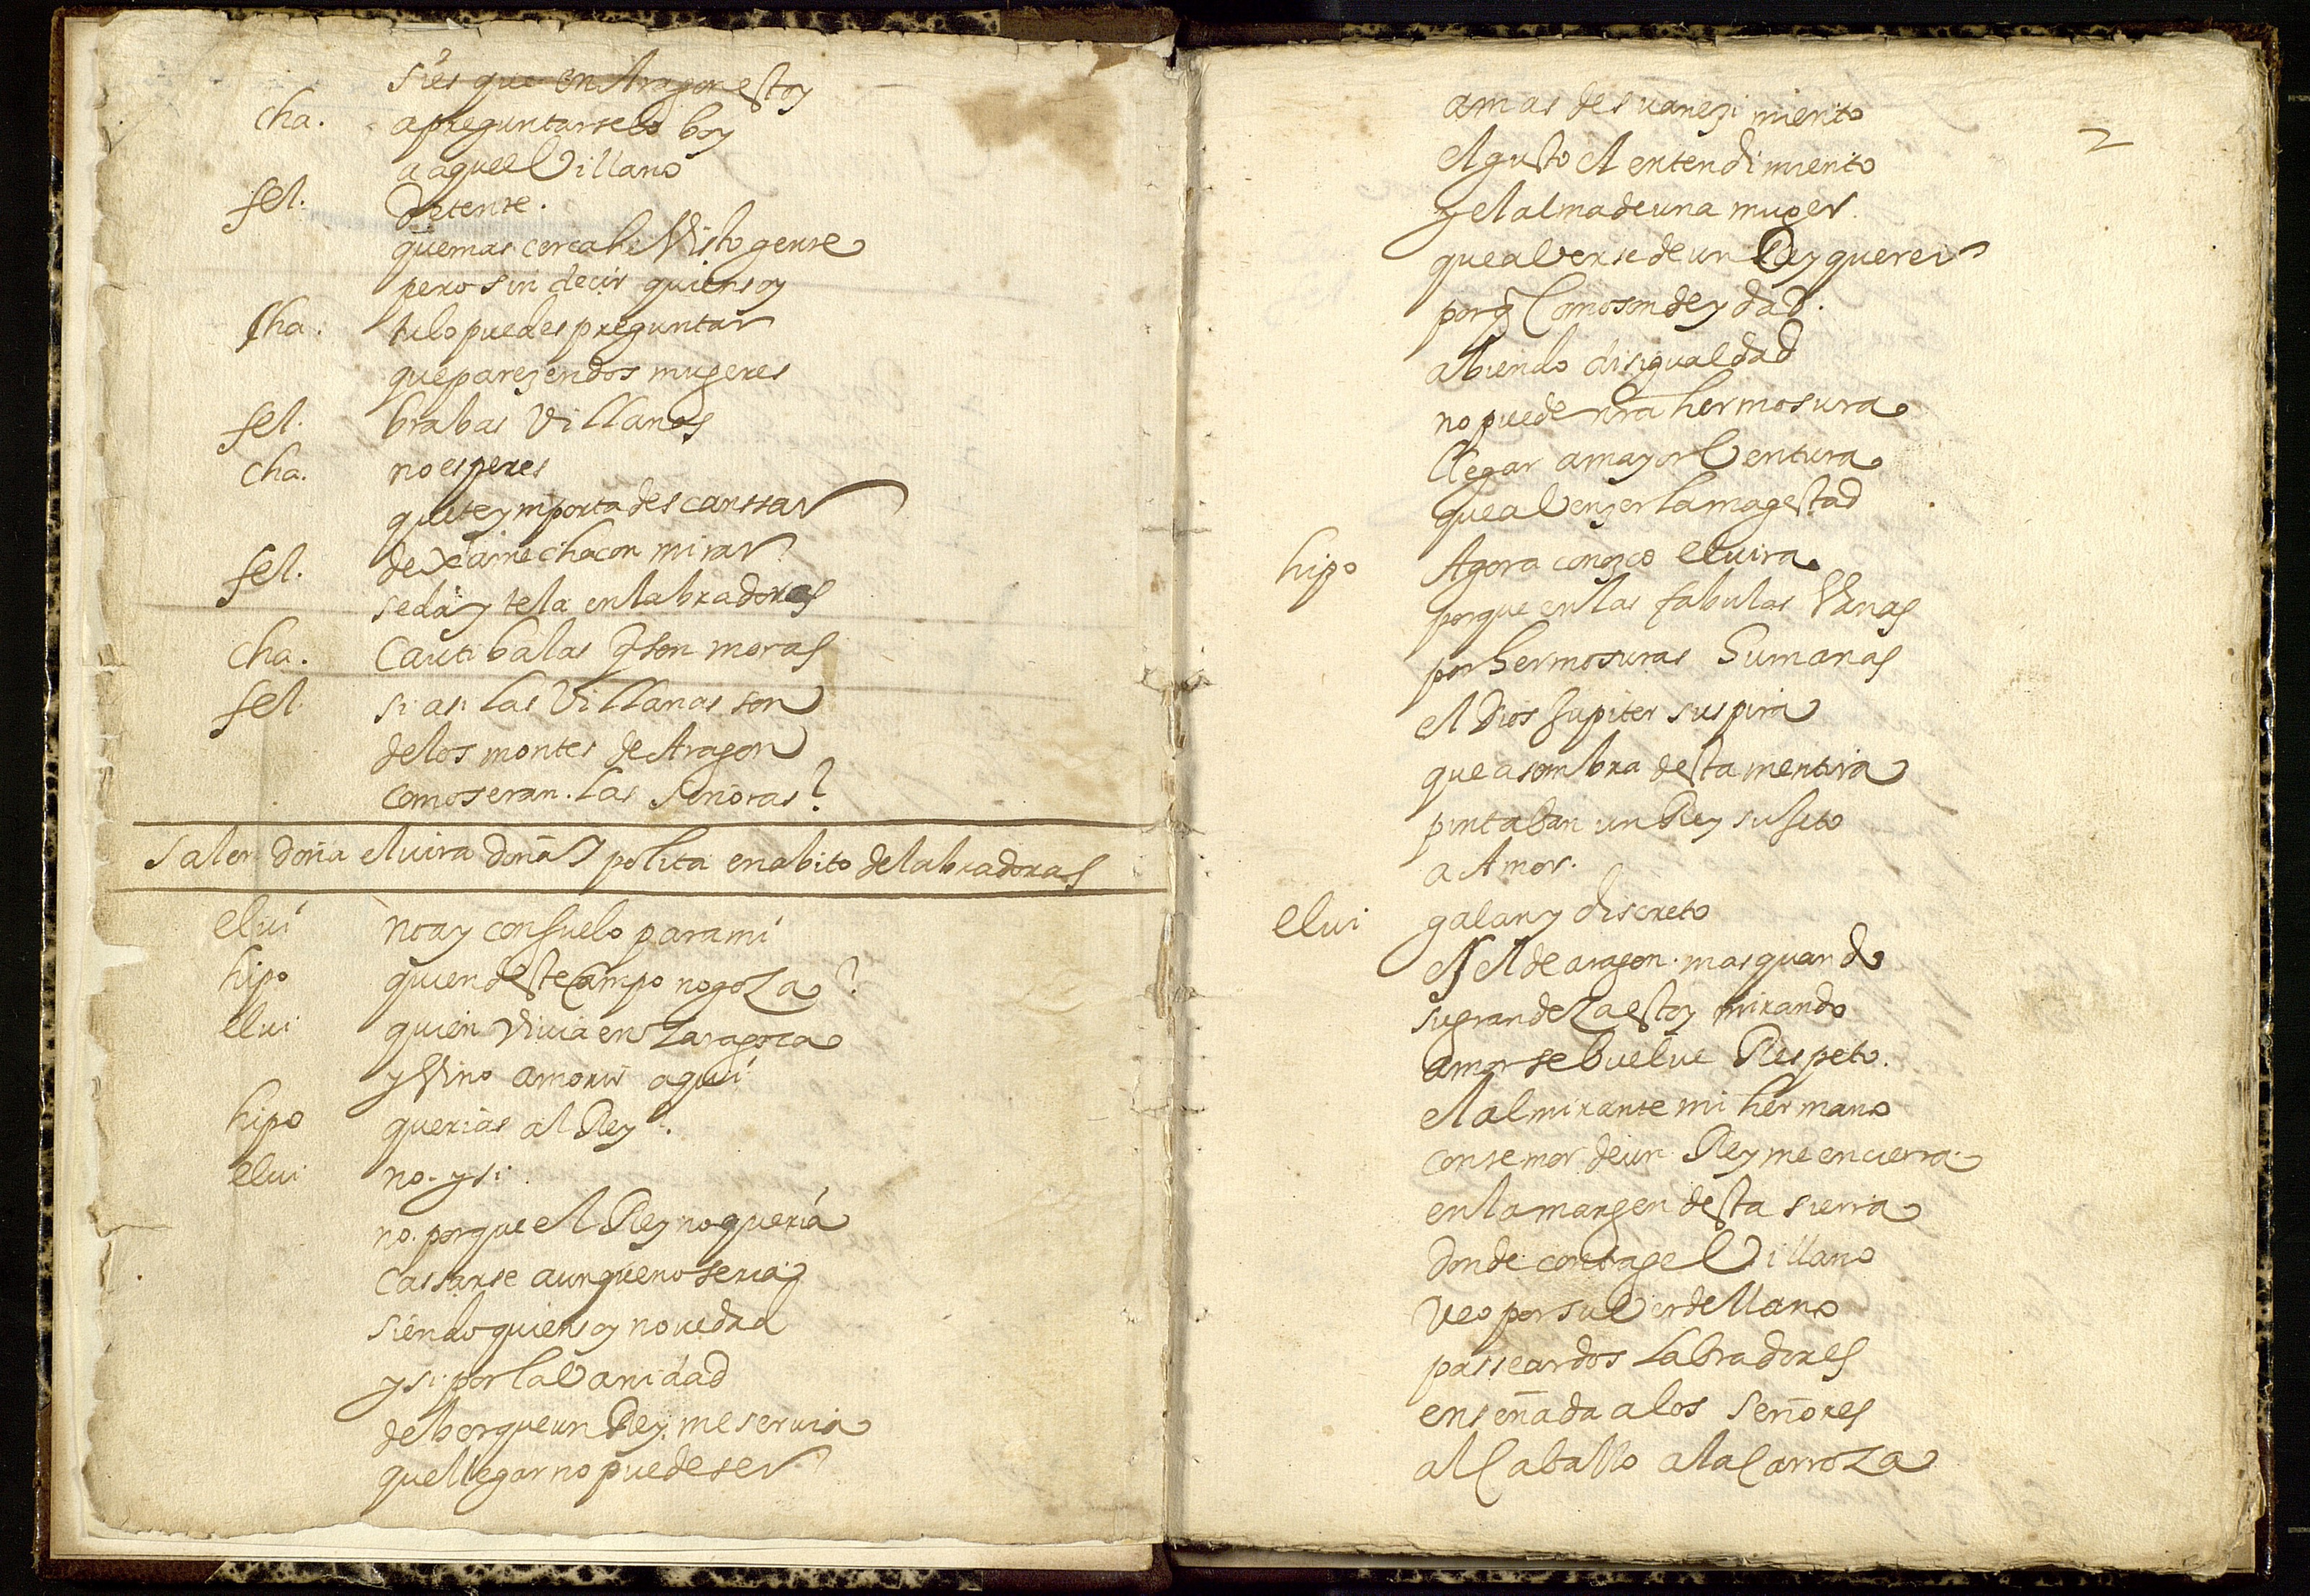 si es que en Aragon estoy
cha. a preguntarselo boy
a aquel Villano
fel. detente.
que mas cerca he Visto gente
pero sin decir quien soy
cha. tu lo puedes preguntar
que pareçen dos mugeres
fel. brabas Villanas
cha. no esperes
que te ymporta descanssar
fel. dexame chacon mirar
seda y tela en labradoras
cha. Cautibalas q son moras
fel. si asi las Villanas son
de los montes de Aragon
como seran. las señoras?
Salen doña eluira doña ypolita en abito de labradoras
elui no ay consuelo para mi
hipo quien deste Campo no goza?
elui quien Viuia en Zaragoza
y Vino a morir aqui
hipo querias al Rey?
elui no. y si
no. porque el Rey no queria
Cassarse aunque no seria
siendo quien soy nouedad
y si por la Vanidad
de ber que un Rey me seruia
que llegar no puede ser
2
a mas desuaneçimiento
el gusto el entendimiento
y el alma de una muger.
que al verse de un Rey querer
porq Como son deydad.
abiendo disigualdad
no puede nra hermosura
llegar a mayor Ventura
que al Vençer la magestad
hipo Agora conozco eluira
porque en las fabulas Vanas
por hermosuras humanas
el Dios Jupiter suspira
que a sombra desta mentira
pintaban un Rey sujeto
a Amor.
elui galan y discreto
es el de aragon. mas quando
su grandeza estoy mirando
amor se buelue Respeto.
el almirante mi hermano
con temor de un Rey me encierra
en la margen desta sierra
donde con traje Villano
veo por su Verde llano
passear dos labradores
enseñada a los señores
al Caballo a la Carroza